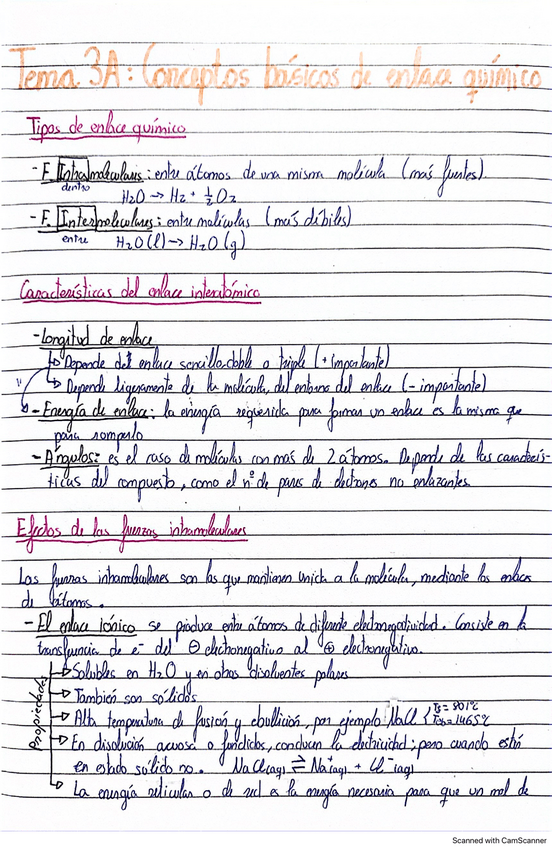 Tema 3A: Conceptos básicos de enlace químico
Tipos de enlace químico
- F. Intramoleculares: entre átomos de una misma molécula (más fuertes).
dentro
H2O → H2 + 1/2 O2
- F. Intermoleculares: entre moléculas (más débiles)
entre
H2O (l) → H2O (g)
Características del enlace interatómico
- Longitud de enlace
↳ Depende del enlace sencillo, doble o triple (+ importante)
↳ Depende ligeramente de la molécula, del entorno del enlace (- importante)
- Energía de enlace: la energía requerida para formar un enlace es la misma que
para romperlo
- Ángulos: es el caso de moléculas con más de 2 átomos. Depende de las caracterís-
ticas del compuesto, como el nº de pares de electrones no enlazantes.
Efectos de las fuerzas intramoleculares
Las fuerzas intramoleculares son las que mantienen unida a la molécula, mediante los enlaces
de átomos.
- El enlace iónico se produce entre átomos de diferente electronegatividad. Consiste en la
transfuencia de e- del ⊖ electronegativo al ⊕ electronegativo.
Propiedades
→ Solubles en H2O y en otros disolventes polares
→ También son sólidos
→ Alta temperatura de fusión y ebullición, por ejemplo: NaCl { = 801ºC
= 1465ºC
→ En disolución acuosa o fundidos, conducen la electricidad; pero cuando están
en estado sólido no. NaCl(aq) ⇌ Na+(aq) + Cl-(aq)
→ La energía reticular o de red es la energía necesaria para que un mol de
Scanned with CamScanner